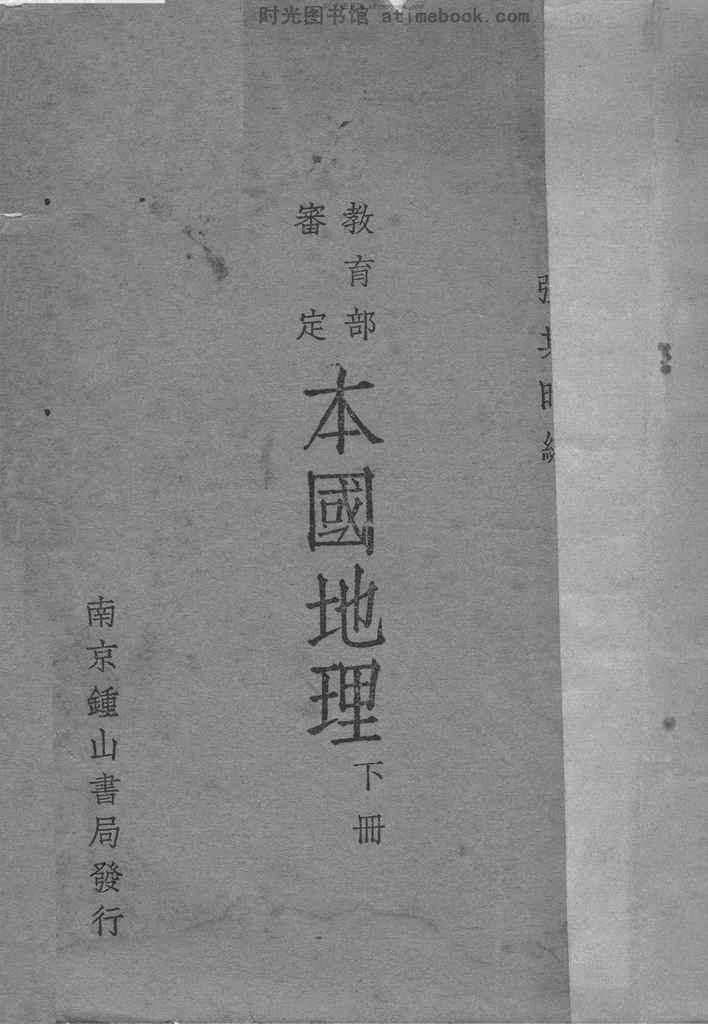 时光图书馆 atimebook.com
教育部
審定
本國地理
下冊
南京鍾山書局發行